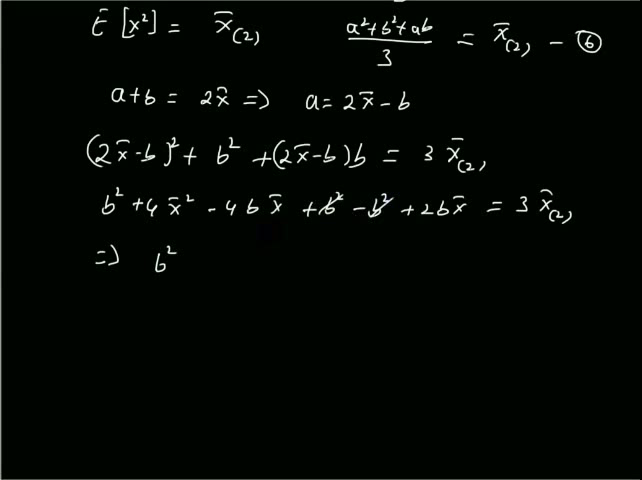 E[x²] = x̄₍₂₎   (a²+b²+ab)/3 = x̄₍₂₎ — ⑥
a+b = 2x̄ => a = 2x̄ - b
(2x̄-b)² + b² + (2x̄-b)b = 3 x̄₍₂₎
b² + 4x̄² - 4bx̄ + b² - b² + 2bx̄ = 3 x̄₍₂₎
=> b²